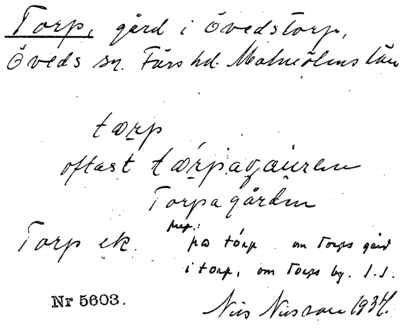 Torp, gård i Övedstorp,
Öveds sn. Färs hd. Malmöhus län
tærp
oftast tærpagauren
Torpagården
prep.:
Torp ek. på torp om Torps gård
i torp, om Torps by.
Nr 5603.
Nils Nilsson 1934.